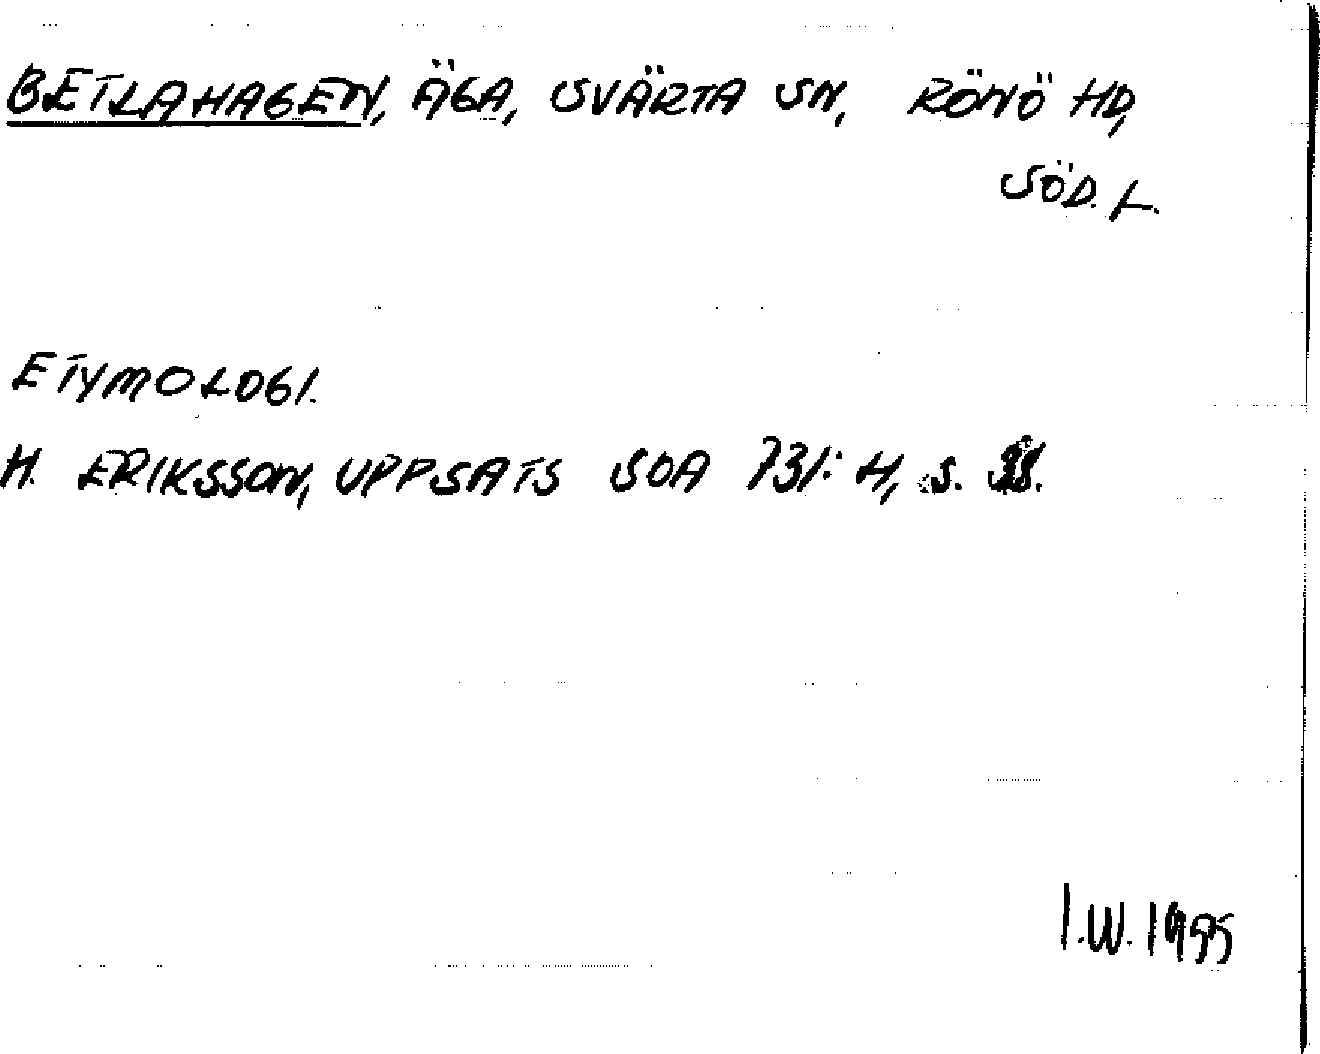 BETLAHAGEN, ÄGA, SVÄRTA SN, RÖNÖ HD,
SÖD. L.
ETYMOLOGI.
H. ERIKSSON, UPPSATS SOA 731: H, s.
I.W. 1995